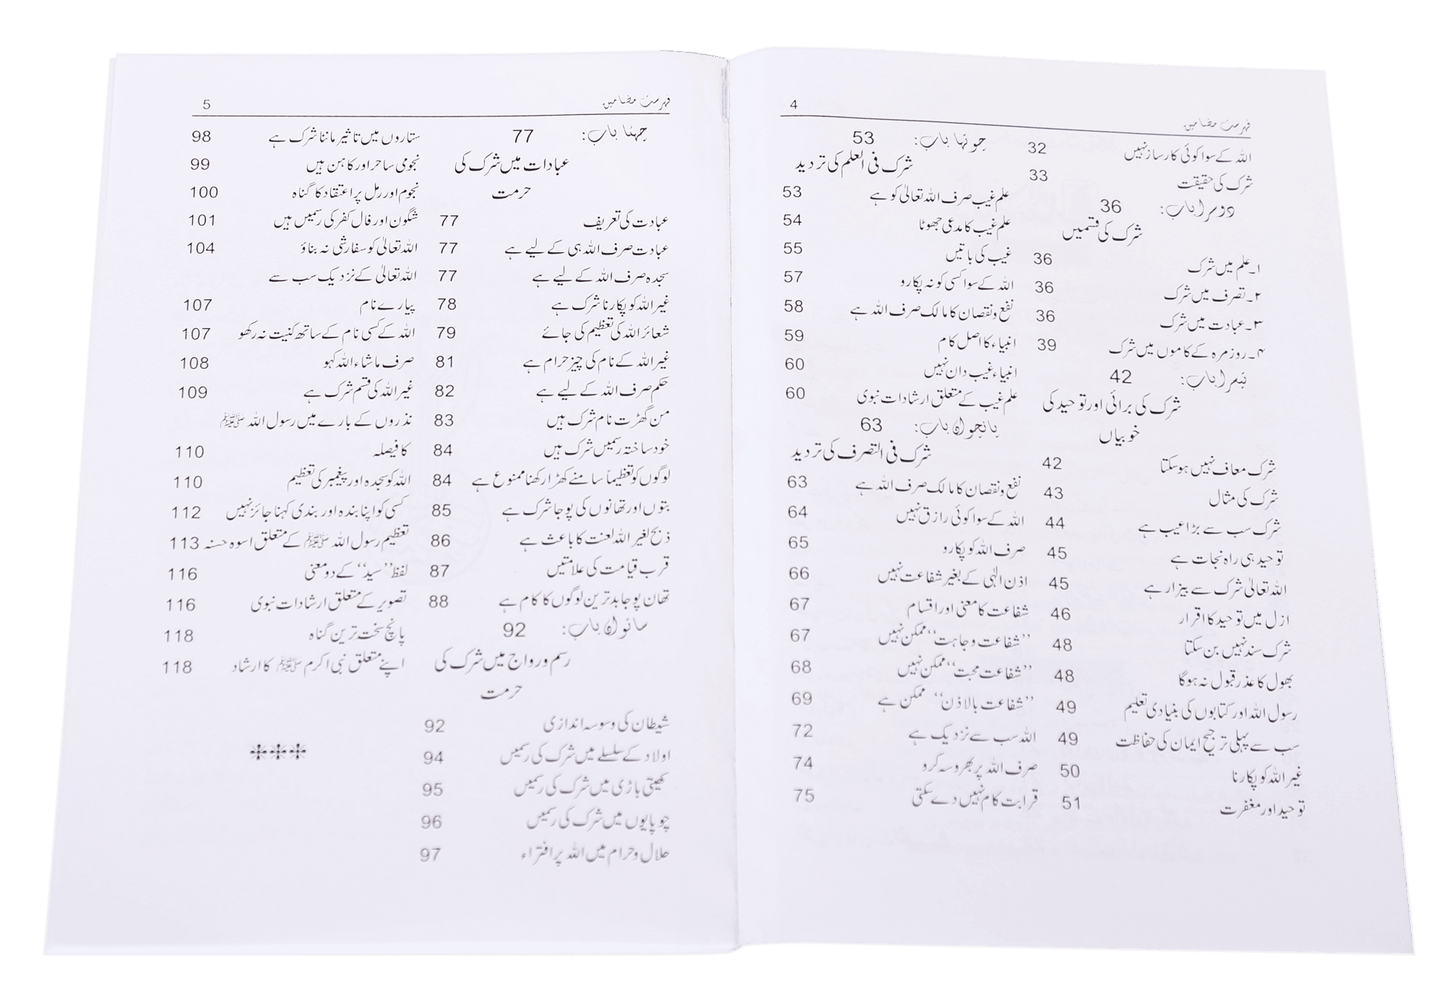 4
فہرست مضامین
اللہ کے سوا کوئی کارساز نہیں 32
شرک کی حقیقت 33
دوسرا باب: 36
شرک کی قسمیں
۱۔علم میں شرک 36
۲۔تصرف میں شرک 36
۳۔عبادت میں شرک 36
۴۔روزمرہ کے کاموں میں شرک 39
تیسرا باب: 42
شرک کی برائی اور توحید کی
خوبیاں
شرک معاف نہیں ہو سکتا 42
شرک کی مثال 43
شرک سب سے بڑا عیب ہے 44
توحید ہی راہ نجات ہے 45
اللہ تعالیٰ شرک سے بیزار ہے 45
ازل میں توحید کا اقرار 46
شرک سند نہیں بن سکتا 48
بھول کا عذر قبول نہ ہوگا 48
رسول اللہ اور کتابوں کی بنیادی تعلیم 49
سب سے پہلی ترجیح ایمان کی حفاظت 49
غیر اللہ کو پکارنا 50
توحید اور مغفرت 51
چوتھا باب: 53
شرک فی العلم کی تردید
علم غیب صرف اللہ تعالیٰ کو ہے 53
علم غیب کا مدعی جھوٹا 54
غیب کی باتیں 55
اللہ کے سوا کسی کو نہ پکارو 57
نفع و نقصان کا مالک صرف اللہ ہے 58
انبیاء کا اصل کام 59
انبیاء غیب دان نہیں 60
علم غیب کے متعلق ارشادات نبوی 60
پانچواں باب: 63
شرک فی التصرف کی تردید
نفع و نقصان کا مالک صرف اللہ ہے 63
اللہ کے سوا کوئی رازق نہیں 64
صرف اللہ کو پکارو 65
اذن الٰہی کے بغیر شفاعت نہیں 66
شفاعت کا معنی اور اقسام 67
”شفاعت وجاہت“ ممکن نہیں 67
”شفاعت محبت“ ممکن نہیں 68
”شفاعت بالاذن“ ممکن ہے 69
اللہ سب سے نزدیک ہے 72
صرف اللہ پر بھروسہ کرو 74
قرابت کام نہیں دے سکتی 75
5
فہرست مضامین
چھٹا باب: 77
عبادات میں شرک کی
حرمت
عبادت کی تعریف 77
عبادت صرف اللہ ہی کے لیے ہے 77
سجدہ صرف اللہ کے لیے ہے 77
غیر اللہ کو پکارنا شرک ہے 78
شعائر اللہ کی تعظیم کی جائے 79
غیر اللہ کے نام کی چیز حرام ہے 81
حکم صرف اللہ کے لیے ہے 82
من گھڑت نام شرک ہیں 83
خود ساختہ رسمیں شرک ہیں 84
لوگوں کو تعظیماً سامنے کھڑا رکھنا ممنوع ہے 84
بتوں اور تھانوں کی پوجا شرک ہے 85
ذبح لغیر اللہ لعنت کا باعث ہے 86
قرب قیامت کی علامتیں 87
تھان پوجا بدترین لوگوں کا کام ہے 88
ساتواں باب: 92
رسم و رواج میں شرک کی
حرمت
شیطان کی وسوسہ اندازی 92
اولاد کے سلسلے میں شرک کی رسمیں 94
کھیتی باڑی میں شرک کی رسمیں 95
چوپایوں میں شرک کی رسمیں 96
حلال و حرام میں اللہ پر افتراء 97
ستاروں میں تاثیر ماننا شرک ہے 98
نجومی ساحر اور کاہن ہیں 99
نجوم اور رمل پر اعتقاد کا گناہ 100
شگون اور فال کفر کی رسمیں ہیں 101
اللہ تعالیٰ کو سفارشی نہ بناؤ 104
اللہ تعالیٰ کے نزدیک سب سے
پیارے نام 107
اللہ کے کسی نام کے ساتھ کنیت نہ رکھو 107
صرف ماشاء اللہ کہو 108
غیر اللہ کی قسم شرک ہے 109
نذروں کے بارے میں رسول اللہ ﷺ
کا فیصلہ 110
اللہ کو سجدہ اور پیغمبر کی تعظیم 110
کسی کو اپنا بندہ اور بندی کہنا جائز نہیں 112
تعظیم رسول اللہ ﷺ کے متعلق اسوہ حسنہ 113
لفظ ”سید“ کے دو معنی 116
تصویر کے متعلق ارشادات نبوی 116
پانچ سخت ترین گناہ 118
اپنے متعلق نبی اکرم ﷺ کا ارشاد 118